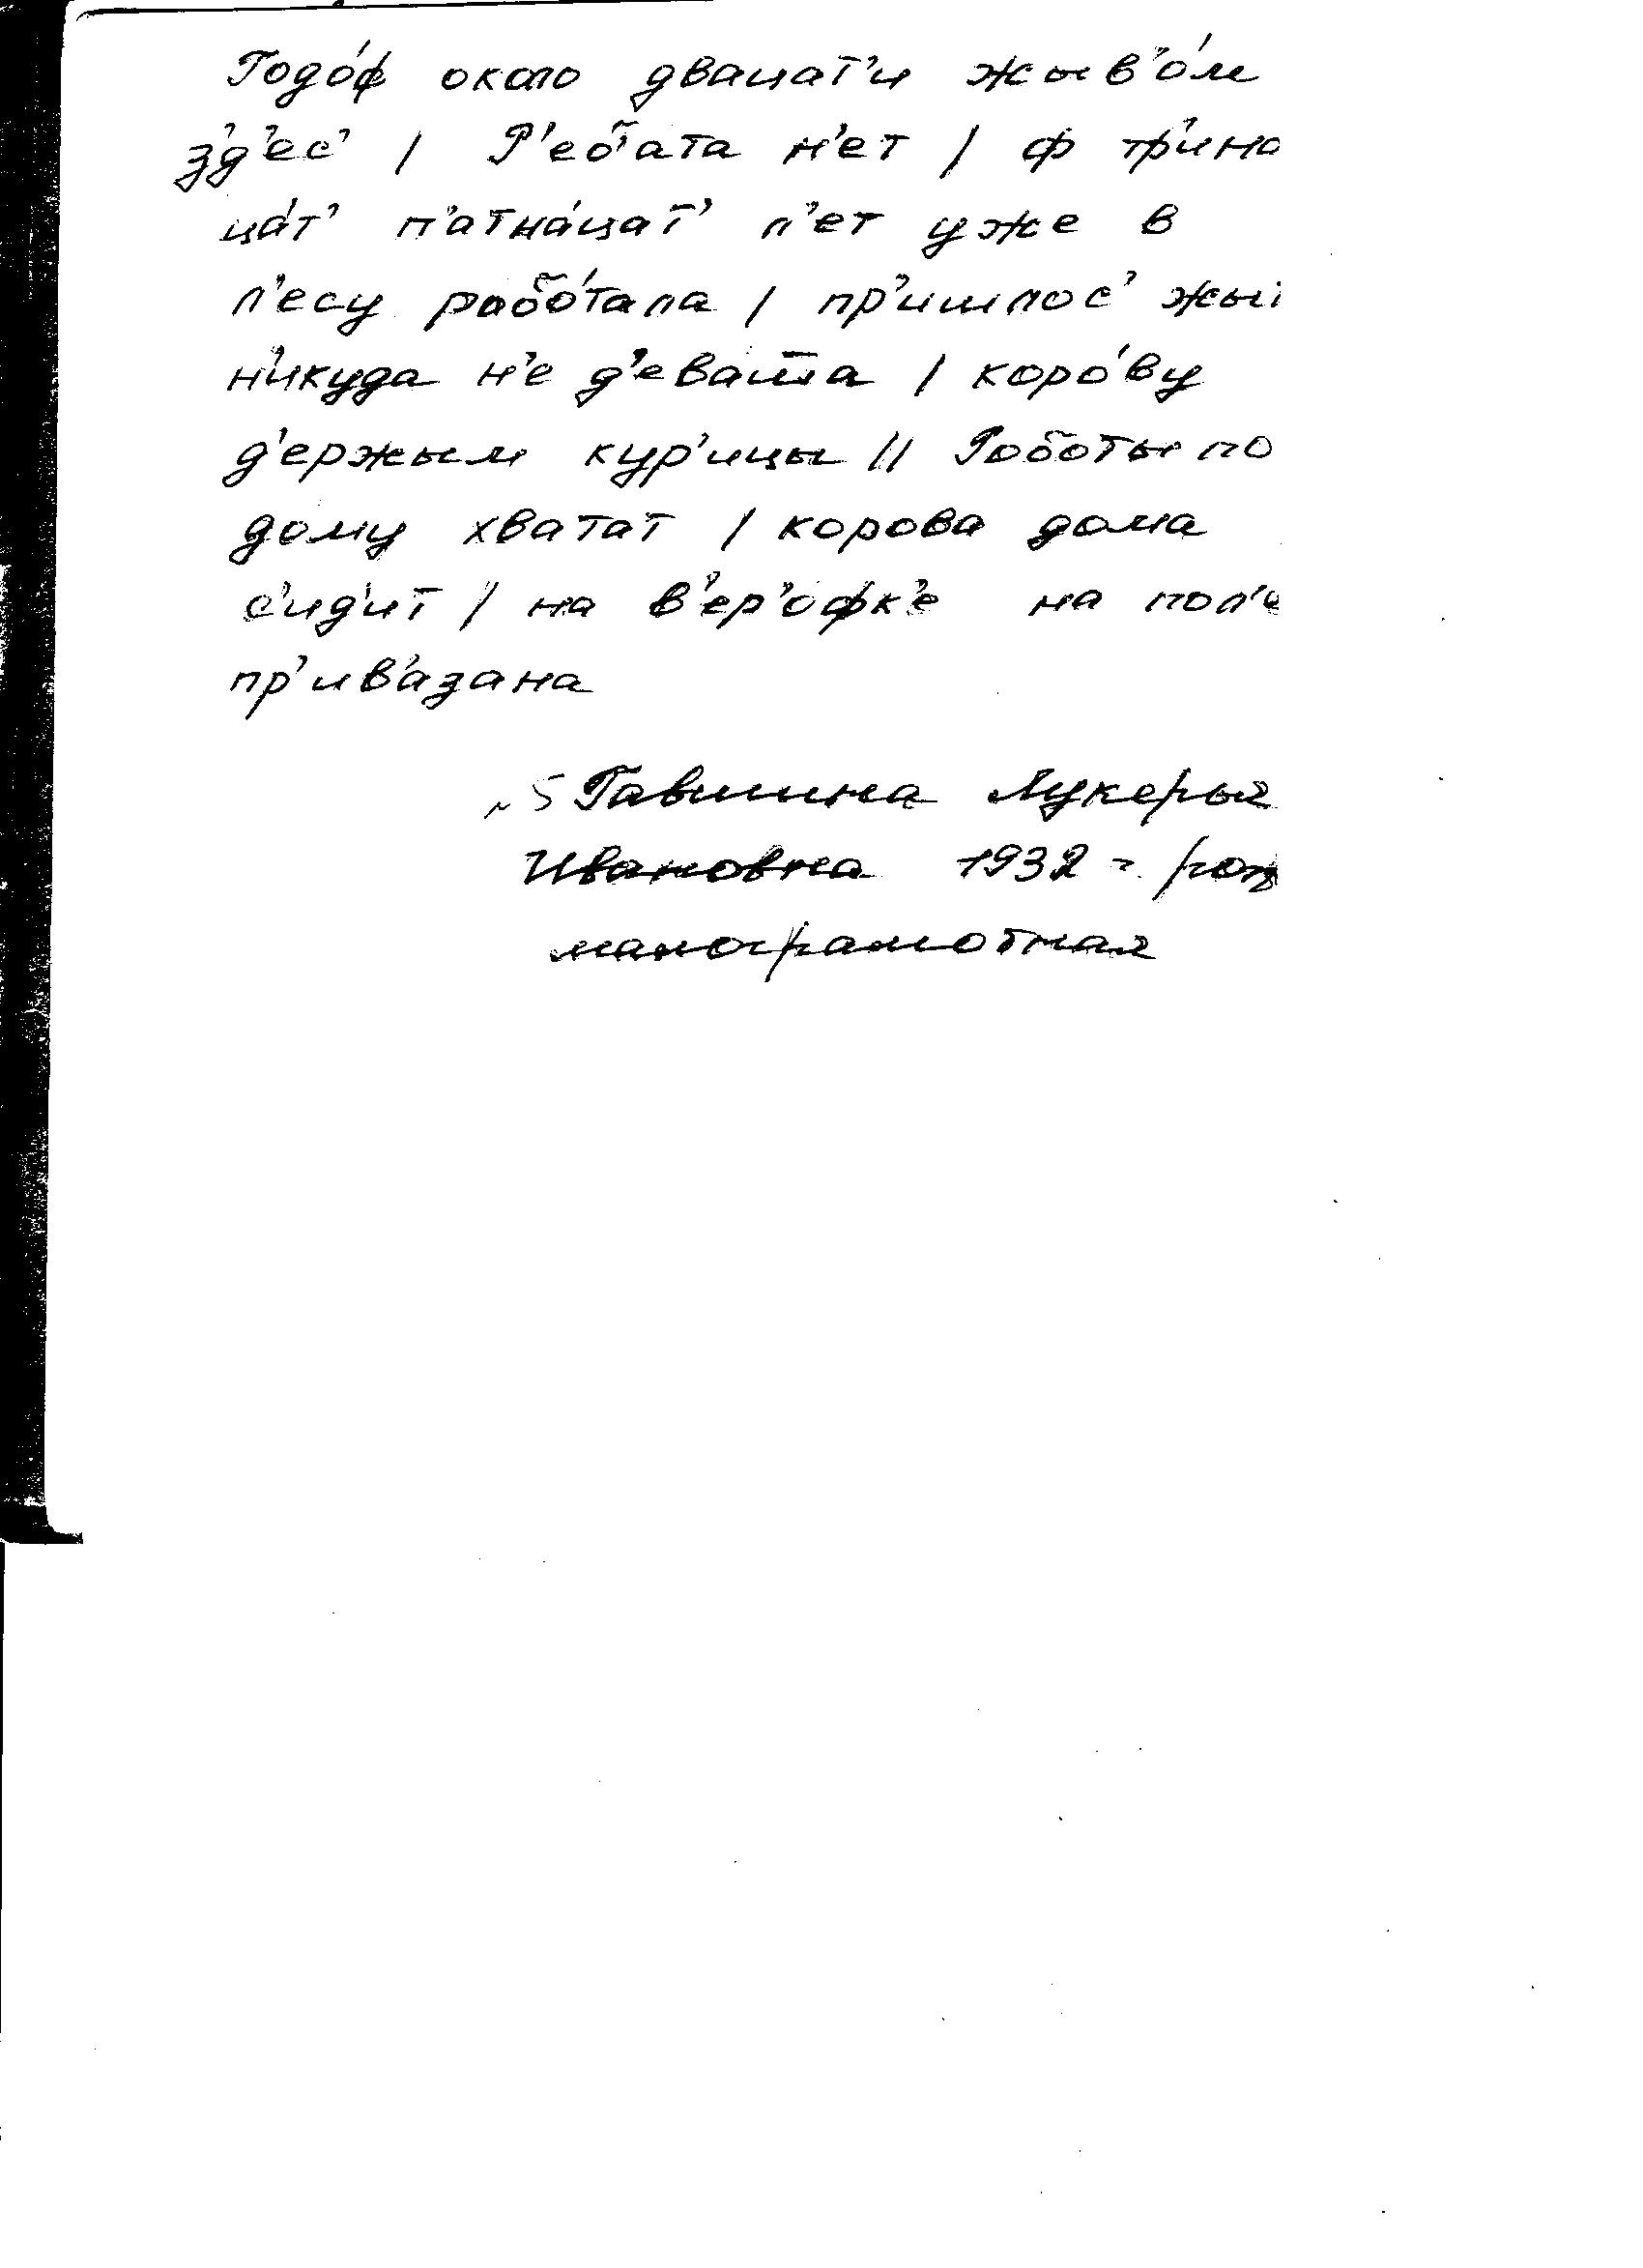 Годо́ф около двацат'и жыв'о́м
з'д'ес' / Р'еб'ата н'ет / ф тр'ина
ца́т' п'атна́цат' л'ет уже в
л'есу робо́тала / пр'ишлос' жыт
н'икуда н'е д'еваш
коро́ву
д'ержым кур'ицы // Роботы по
дому хватат / корова дома
с'ид'ит / на в'ер'офк'е на пол'е
пр'ив'азана
Лукерья
Ивановна 1932 г. рож
малограмотная